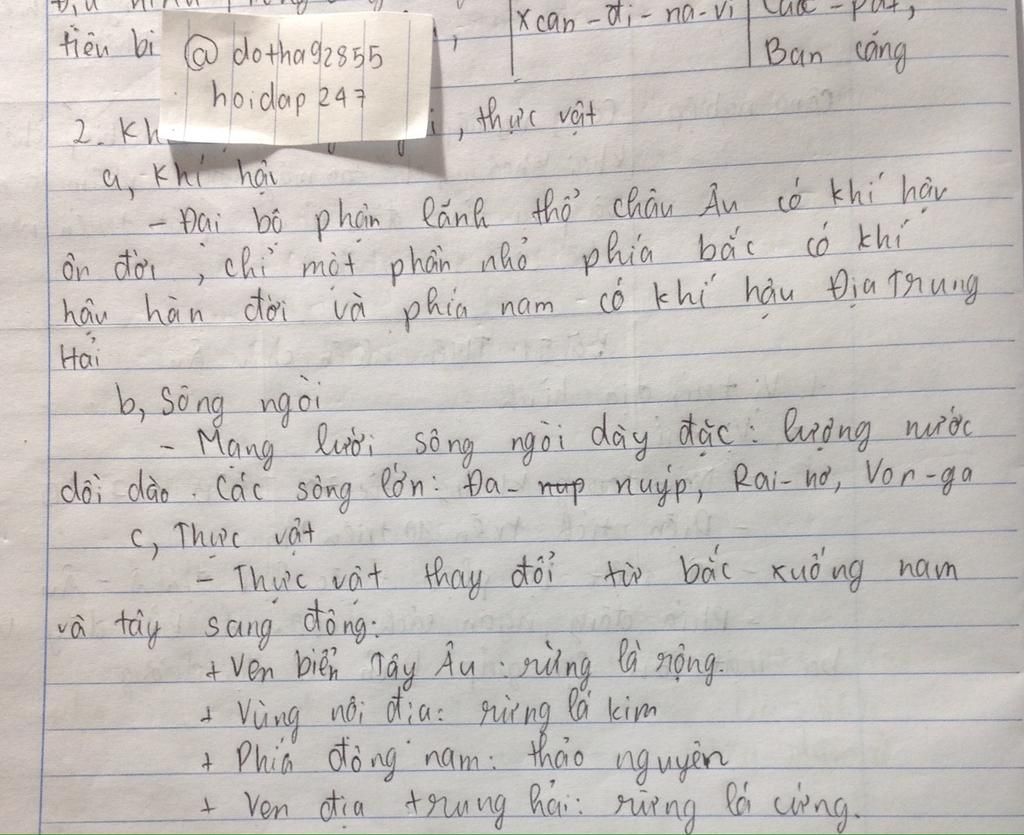 xcan-đi-na-vi
Cac-pat,
tiêu bi
,
Ban căng
@ dotha92855
hoidap 247
2. Kh
, thực vật
a, Khí hậu
- Đại bộ phận lãnh thổ châu Âu có khí hậu
ôn đới, chỉ một phần nhỏ phía bắc có khí
hậu hàn đới và phía nam có khí hậu Địa Trung
Hải
b, Sông ngòi
- Mạng lưới sông ngòi dày đặc: lượng nước
dồi dào. Các sông lớn: Đa-nuýp, Rai-nơ, Von-ga
c, Thực vật
- Thực vật thay đổi từ bắc xuống nam
và tây sang đông:
+ Ven biển Tây Âu: rừng lá rộng.
+ Vùng nội địa: rừng lá kim
+ Phía đông nam: thảo nguyên
+ Ven địa trung hải: rừng lá cứng.